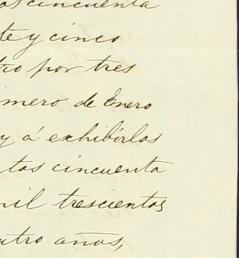 os cincuenta
te y cinco
tro por tres
imero de Enero
y á exhibirlos
tos cincuenta
mil trescientos
uatro años,